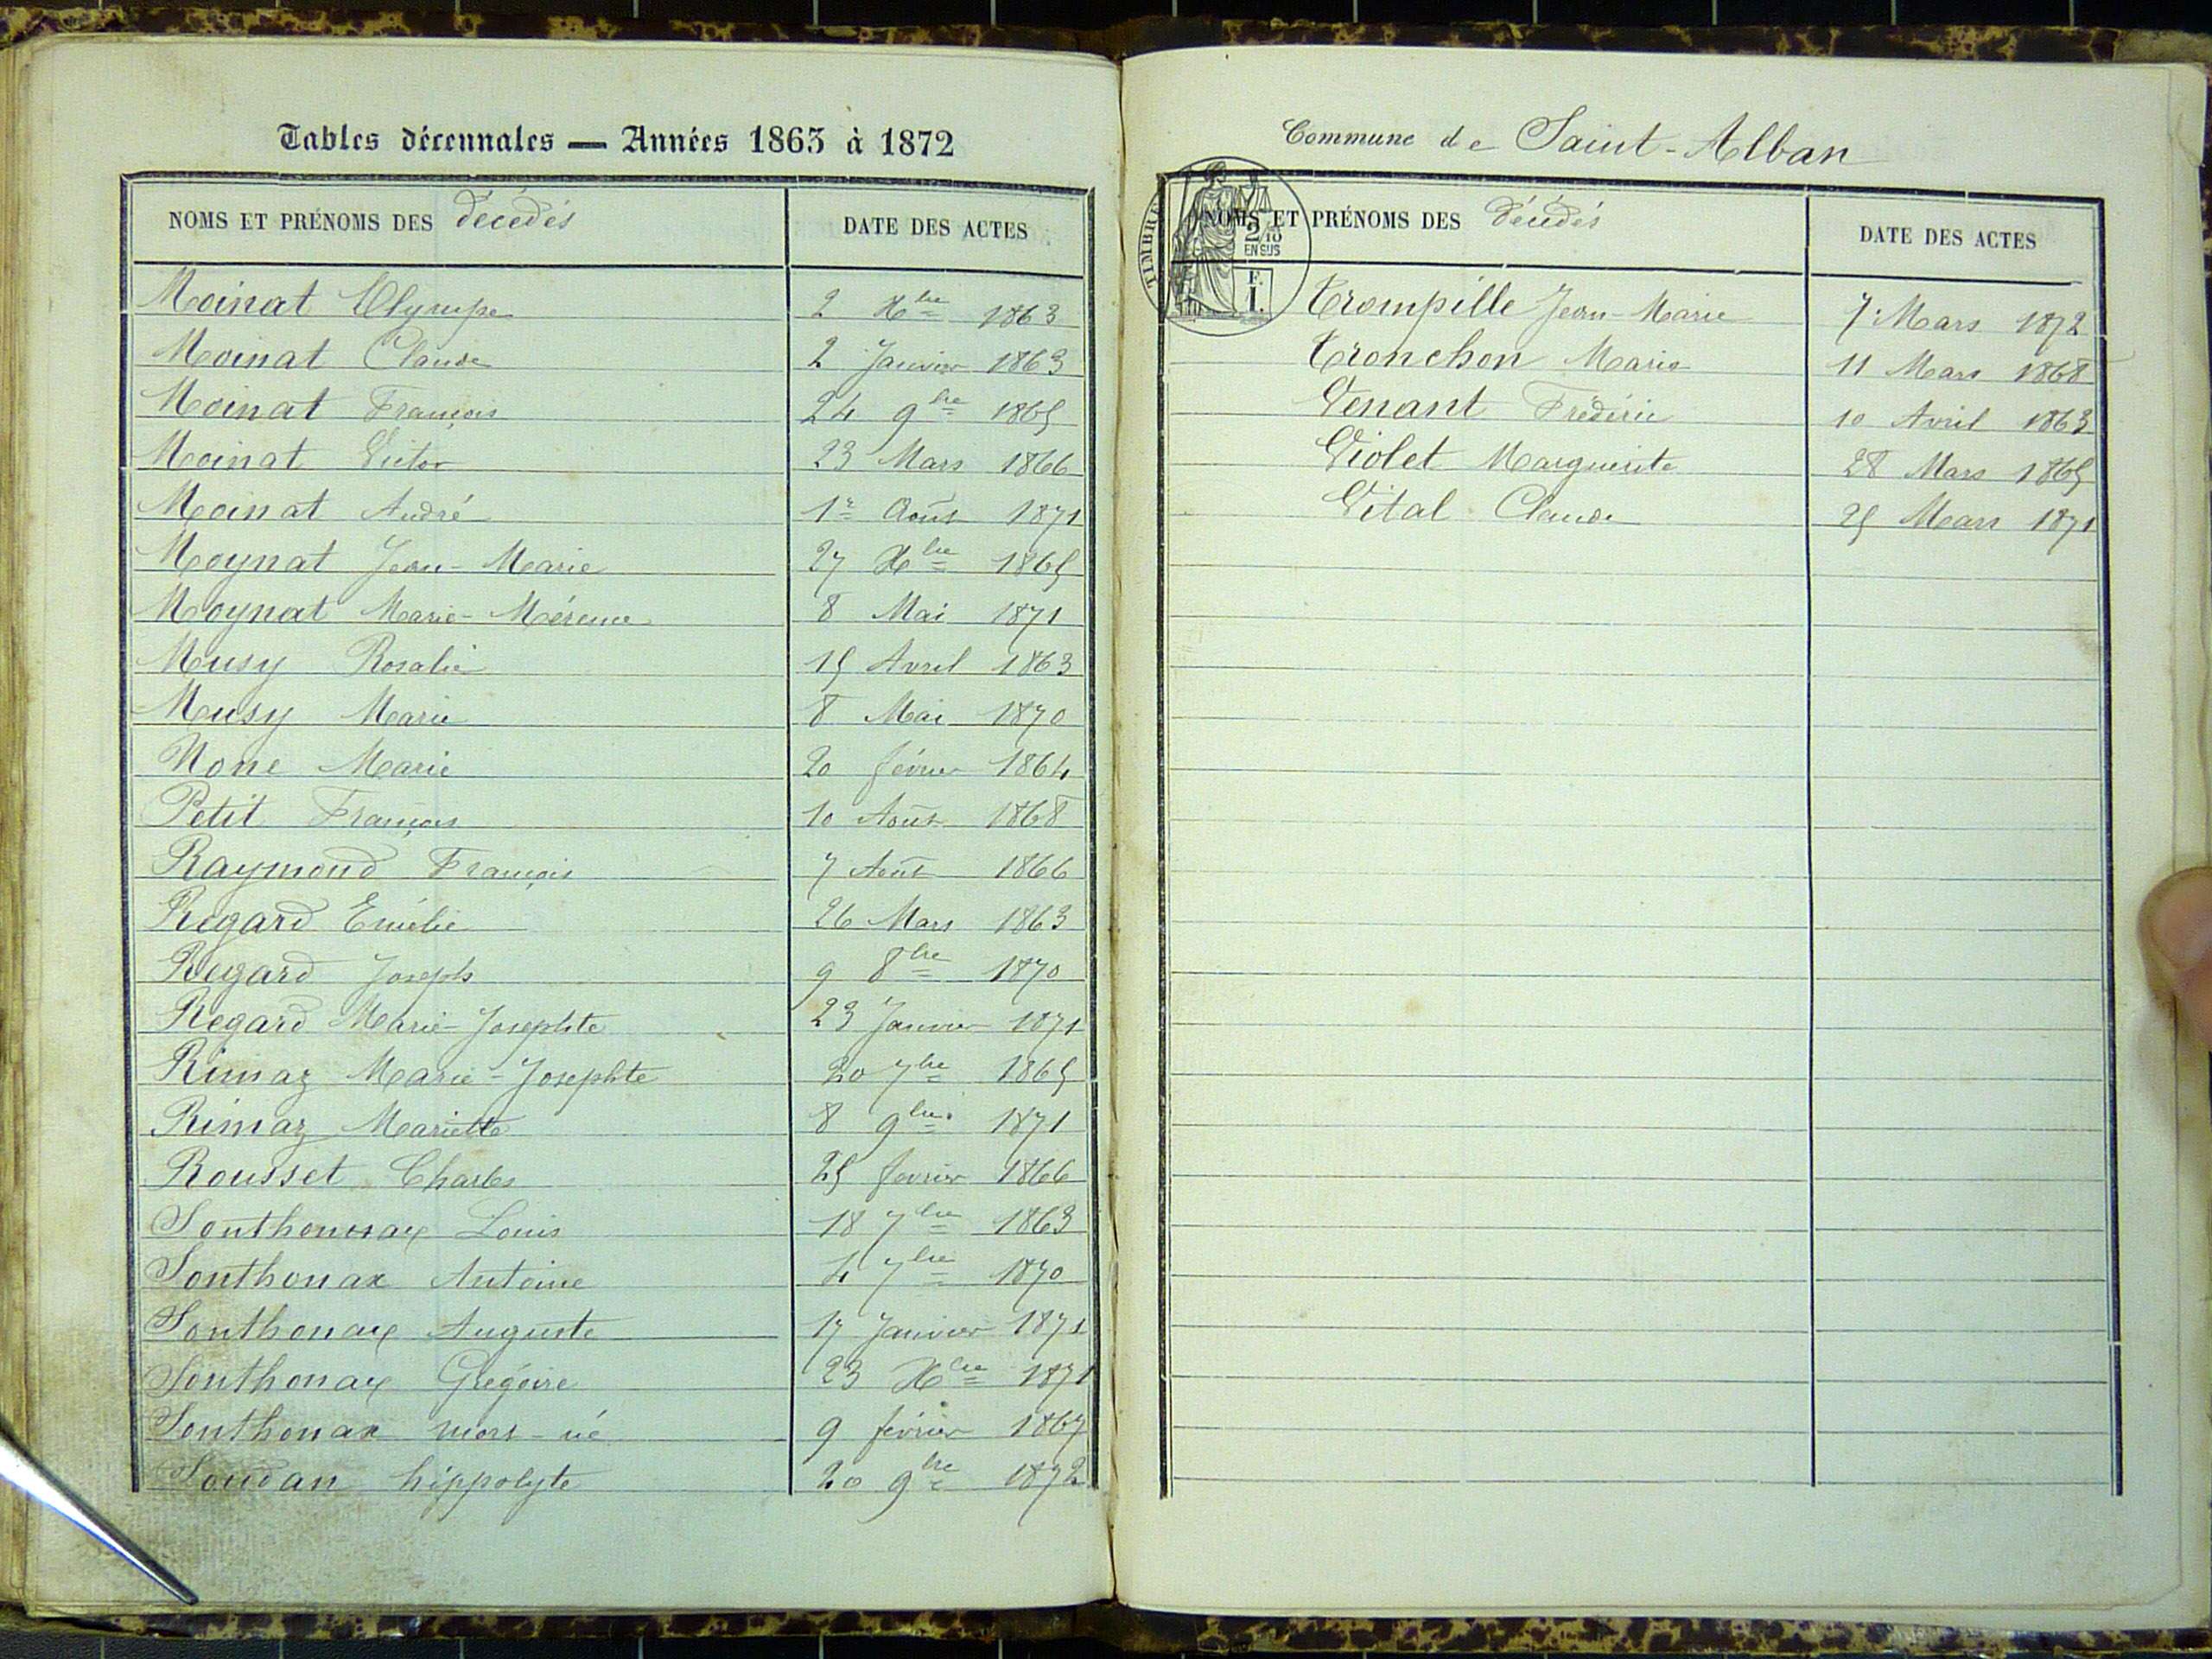 Tables décennales — Années 1863 à 1872
NOMS ET PRÉNOMS DES décédés DATE DES ACTES
Moinat Olympe 2 Xbre 1863
Moinat Claude 2 Janvier 1863
Moinat François 24 9bre 1865
Moinat Victor 23 Mars 1866
Moinat André 1er Août 1871
Moynat Jean-Marie 27 Xbre 1865
Moynat Marie- 8 Mai 1871
Musy Rosalie 15 Avril 1863
Musy Marie 8 Mai 1870
None Marie 20 février 1864
Petit François 10 Août 1868
Raymond François 7 Août 1866
Regard Emélie 26 Mars 1863
Regard Joseph 9 8bre 1870
Regard Marie-Josephte 23 Janvier 1871
Rimaz Marie-Josephte 20 7bre 1865
Rimaz Mariette 8 9bre 1871
Rousset Charles 25 février 1866
Sonthonnax Louis 18 7bre 1863
Sonthonax Antoine 4 7bre 1870
Sonthonax Auguste 17 Janvier 1871
Sonthonax Grégoire 23 Xbre 1871
Sonthonax mort-né 9 février 1867
Soudan hippolyte 20 9bre 1872
Commune de Saint-Alban
TIMBRE
2/10
EN SUS
F.
1.
NOMS ET PRÉNOMS DES décédés DATE DES ACTES
Trompille Jean-Marie 7 Mars 1872
Tronchon Marie 11 Mars 1868
Venant Frédéric 10 Avril 1863
Violet Marguerite 28 Mars 1865
Vital Claude 25 Mars 1871